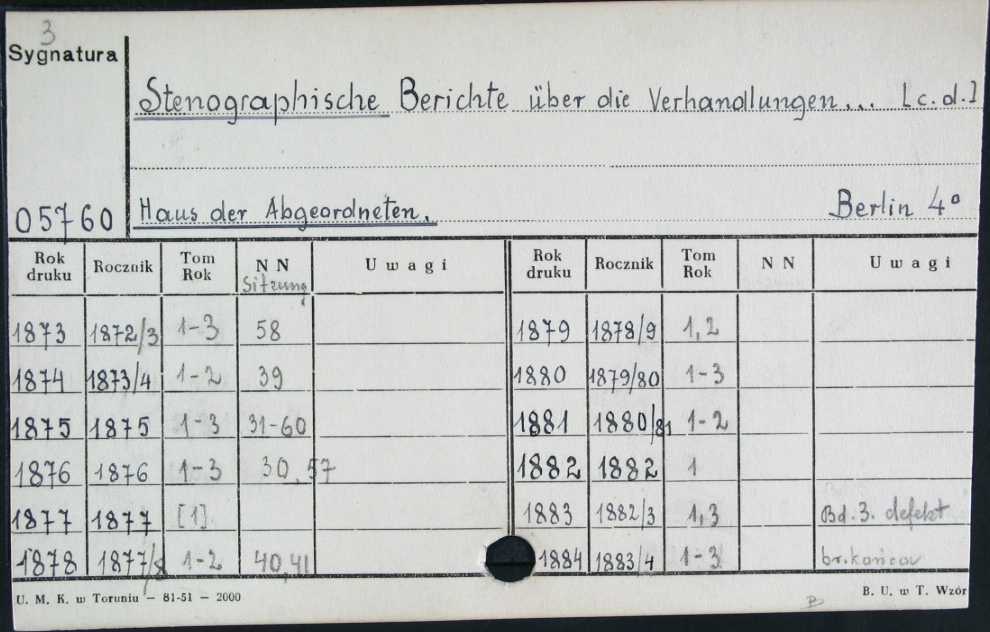 3
Sygnatura
Stenographische Berichte über die Verhandlungen... [c.d.]
05760 Haus der Abgeordneten. Berlin 4°
Rok druku Rocznik Tom Rok NN Sitzung Uwagi Rok druku Rocznik Tom Rok NN Uwagi
1873 1872/3 1-3 58 1879 1878/9 1,2
1874 1873/4 1-2 39 1880 1879/80 1-3
1875 1875 1-3 31-60 1881 1880/81 1-2
1876 1876 1-3 30,57 1882 1882 1
1877 1877 [1] 1883 1882/3 1,3 Bd. 3. defekt
1878 1877/8 1-2 40,41 1884 1883/4 1-3 br. końcow
U. M. K. w Toruniu — 81-51 — 2000 B. U. w T. Wzór